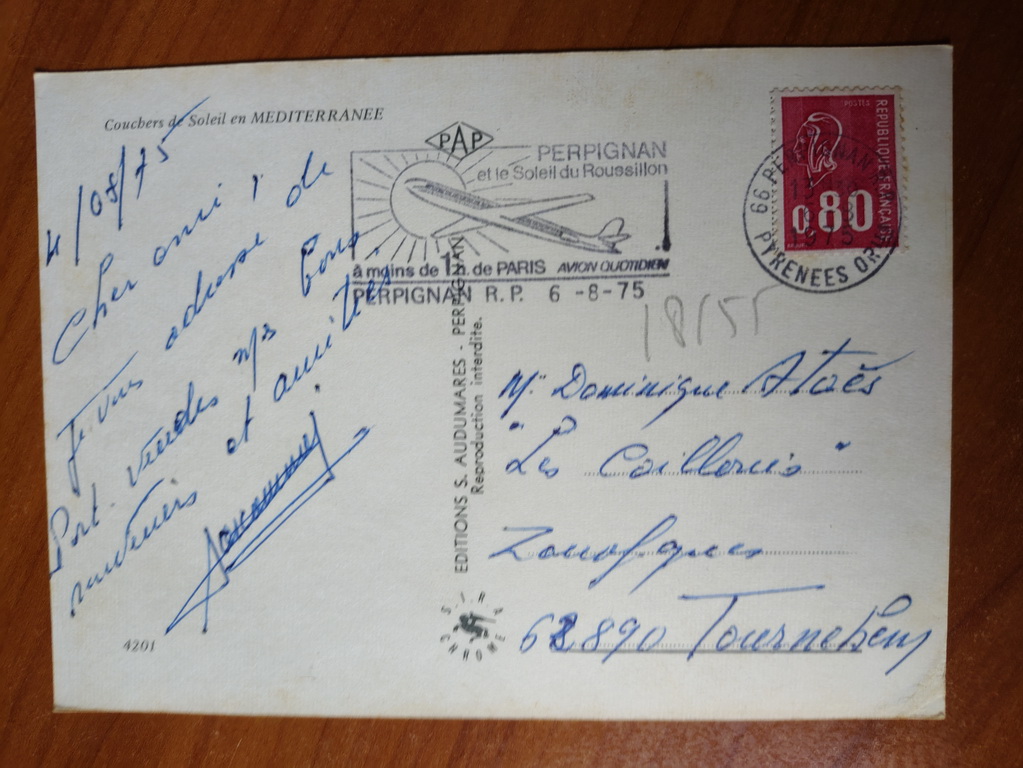 Couchers de Soleil en MEDITERRANEE
4/08/75
Cher ami,
Je vous adresse de
Port-Vendres mes bons
souvenirs et amitiés.
4201
PAP
PERPIGNAN
et le Soleil du Roussillon
à moins de 1h. de PARIS AVION QUOTIDIEN
PERPIGNAN R.P. 6 -8-75
EDITIONS S. AUDUMARES - PERPIGNAN
Reproduction interdite.
POSTES
REPUBLIQUE FRANÇAISE
0.80
66 PERPIGNAN
1975
PYRENEES OR
18/55
Mr Dominique
"Les"
Zouafques
62890 Tournehem